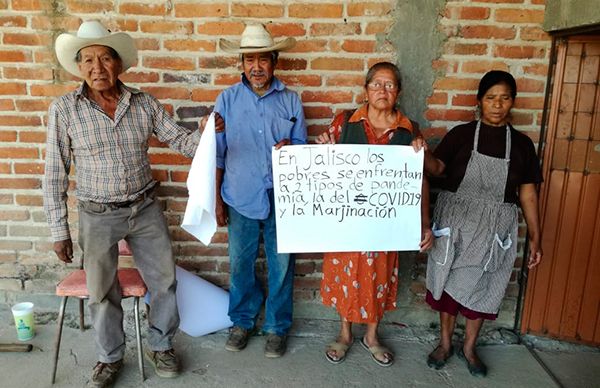 En Jalisco los
pobres se enfrentan
a 2 tipos de pande-
mia, la del COVID19
y la Marjinación